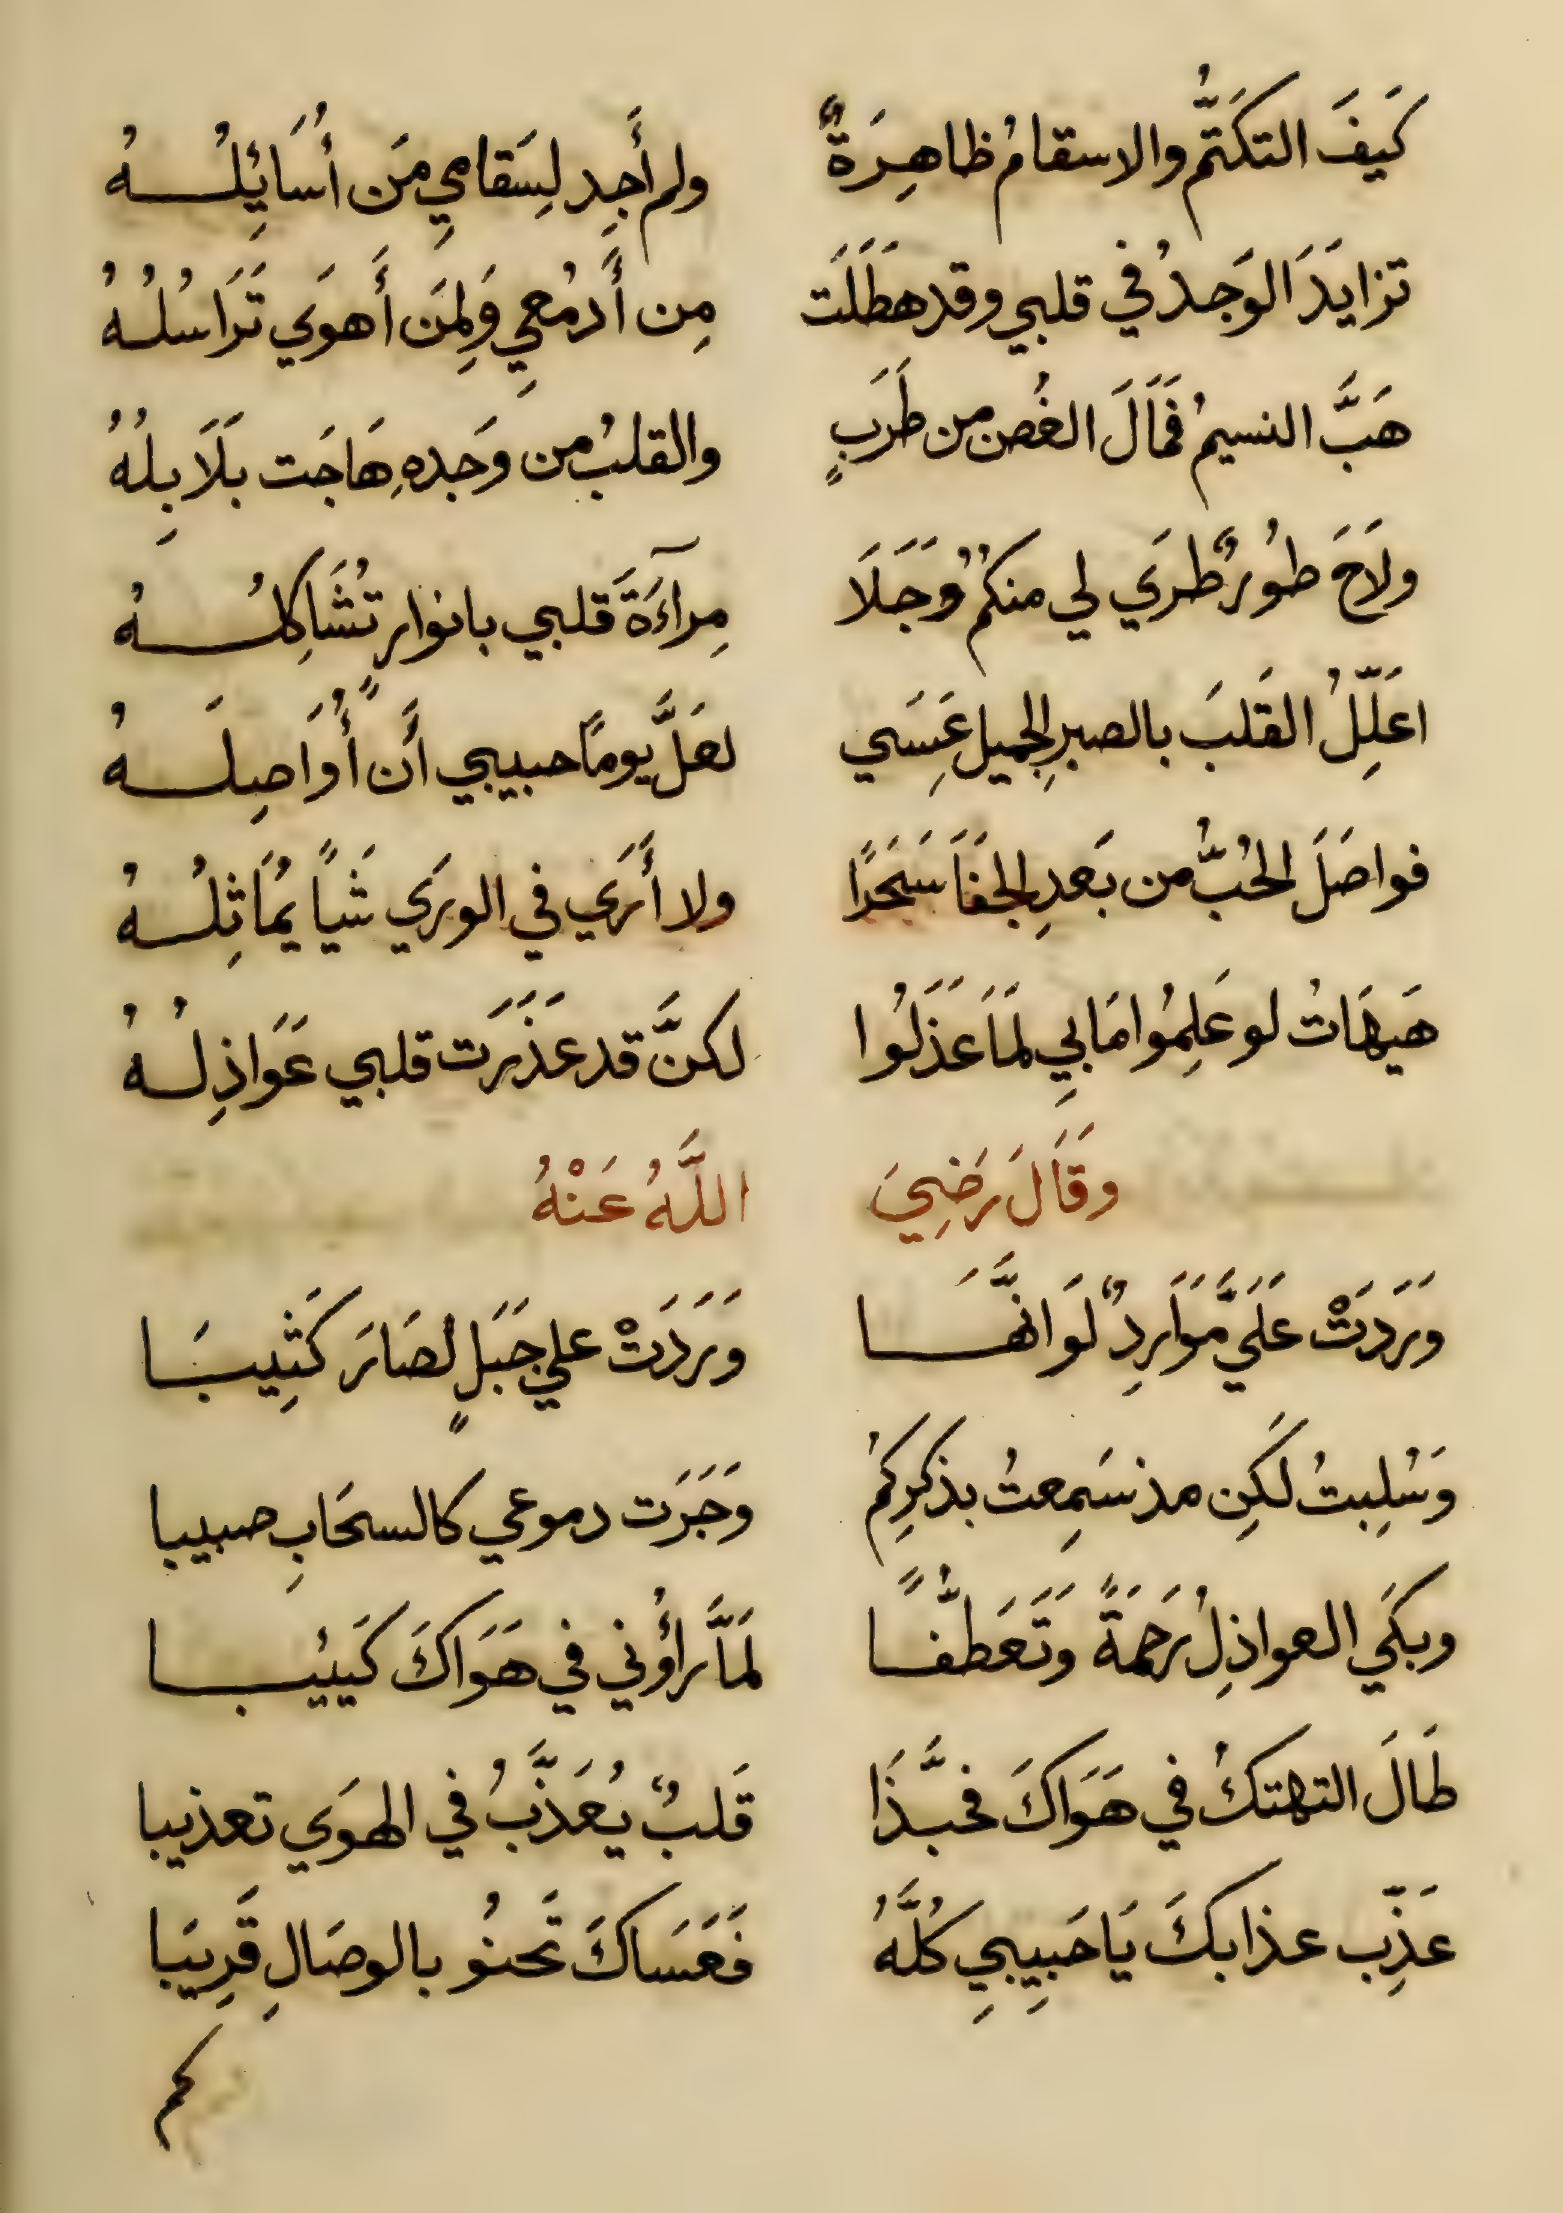 كَيفَ التكَتُّم والاسقامُ ظاهِرَةٌ ولم أَجِد لِسَقامي مَن أُسَائِلُهُ
تزايَدَ الوَجدُ في قلبي وقد هطَلَت مِن أَدمُعي وَلِمَن أَهوَي تَرَاسُلُهُ
هَبَّ النسيمُ فَمَالَ الغُصن من طَرَبٍ والقلبُ من وَجدهِ هَاجَت بَلَابِلُهُ
ولَاحَ طُورٌ طرَي لي منكمُ وَجَلَا مِرآءَةَ قلبي بانوارٍ تُشَاكِلُهُ
اعَلِّلُ القَلبَ بالصبرِ الجميل عَسَي لعَلَّ يومًا حبيبي أَن أُوَاصِلَهُ
فواصَلَ الحُبُّ من بَعدِ الجفَا سَحَرًا ولا أَرَي في الورَي شَياً يُمَاثِلُهُ
هَيهَاتُ لو عَلِمُوا مَا بي لمَا عَذَلُوا لكنَّ قد عذَرَت قلبي عَوَاذِلُهُ
وقَالَ رَضِيَ اللَّهُ عَنْهُ
وَرَدَتْ عَلَيَّ مَوَارِدٌ لَوَ انَّهَا وَرَدَتْ علي جَبَلٍ لصَارَ كَثِيبَا
وَسُلِبتُ لَكِن مذ سَمِعتُ بذكرِكمُ وَجَرَت دموعي كالسحَابِ صبيبا
وبكَي العواذِلُ رَحمَةً وتَعَطُّفًا لَمَّا رأوُني في هَوَاكَ كَيئيبا
طَالَ التهتكُ في هَوَاكَ فحبَّذَا قَلبٌ يُعَذَّبُ في الهوَي تعذيبا
عَذِّب عذابكَ يَا حَبِيبِي كُلَّهُ فَعَسَاكَ تَحنُو بالوصَالِ قَرِيبَا
كم